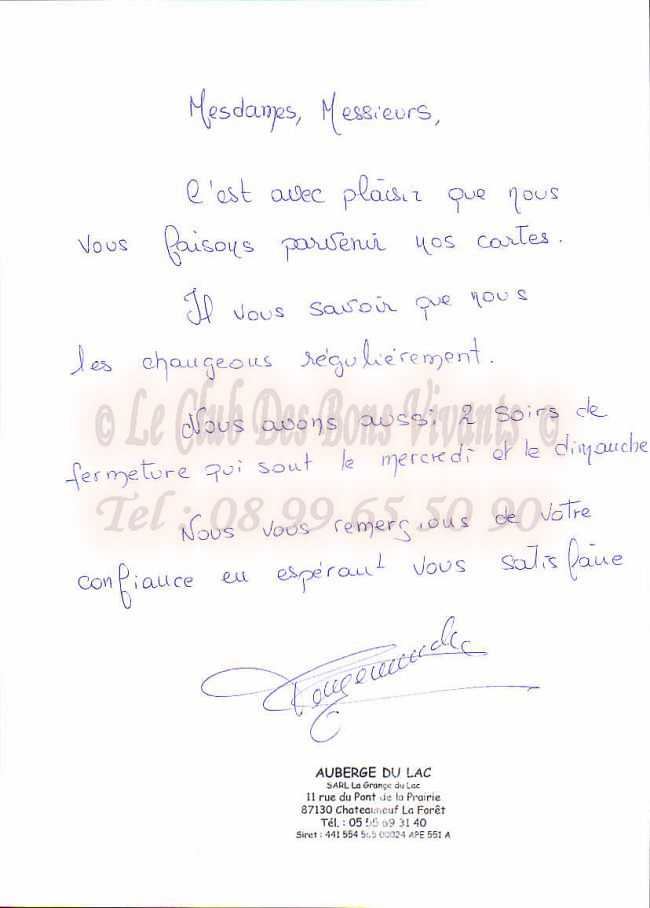 Mesdames, Messieurs,
C'est avec plaisir que nous
vous faisons parvenir nos cartes.
Il vous savoir que nous
les changeons régulièrement.
Nous avons aussi 2 soirs de
fermeture qui sont le mercredi et le dimanche
Nous vous remercions de votre
confiance en espérant vous satisfaire
© Le Club Des Bons Vivants ©
Tel : 08 99 65 50 90
AUBERGE DU LAC
SARL La Grange du Lac
11 rue du Pont de la Prairie
87130 Chateauneuf La Forêt
Tél. : 05 55 69 31 40
Siret : 441 554 565 00024 APE 551 A